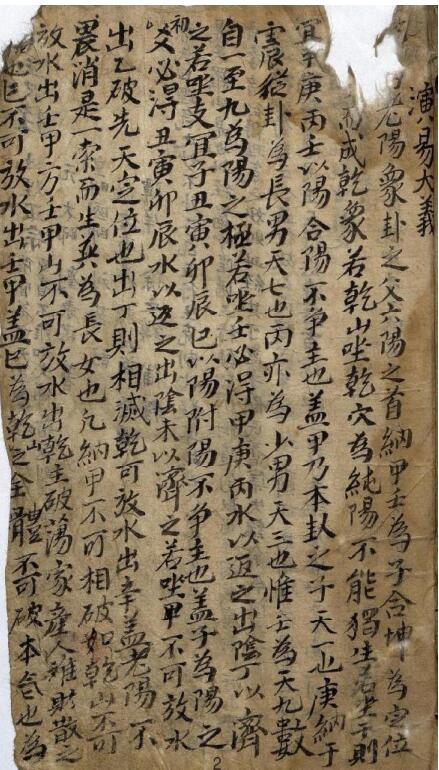 演易大義
老陽衆卦之父六陽之首納甲壬為子合坤為定位
而成乾象若乾山坐乾穴為純陽不能獨生若坐子則
宜辛庚丙壬以陽合陽不爭主也盖甲乃本卦之子天一也庚納于
震辰從卦為長男天七也丙亦為少男天三也惟壬為天九數
自一至九為陽之極若坐壬必淂甲庚丙水以返之出陰丁以濟
之若坐支宜子丑寅卯辰巳以陽附陽不爭主也盖子為陽之
初
爻必淂丑寅卯辰水以返之出陰未以齊之若坐甲不可放水
出乙破先天定位也出丁則相滅乾可放水出辛盖老陽不
畏消是一索而生巽為長女也凡納甲不可相破如乾山不可
放水出壬甲方壬甲山不可放水出乾主破蕩家產人雖財散之
也巳不可放水出壬甲盖巳為乾山之全體不可破本宮也為
2